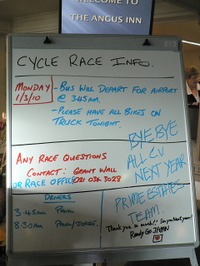 WELCOME TO
THE ANGUS INN
CYCLE RACE INFO.
MONDAY
1/3/10
- BUS WILL DEPART FOR AIRPORT
@ 3.45AM.
- PLEASE HAVE ALL BIKES ON
TRUCK TONIGHT.
BYE BYE
ALL CU
NEXT YEAR
ANY RACE QUESTIONS
CONTACT: GRANT WALL
OR RACE OFFICE
DRIVERS
3.45AM
8.30AM
PRIME ESTATES
TEAM
Thank you so much!! See you Next year!
Ready Go JAPAN